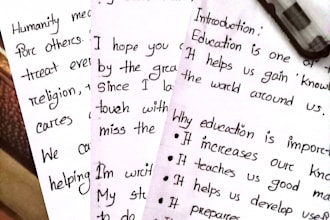 Humanity
For others
treat
religion,
cares
We
helping
I hope you
by the
Since I
touch with
miss the
I'm
My
to do
Introduction:
Education is one of
It helps us gain
the world around us.
Why education is
• It increases our
• It teaches us good
• It helps us develop
• It prepares